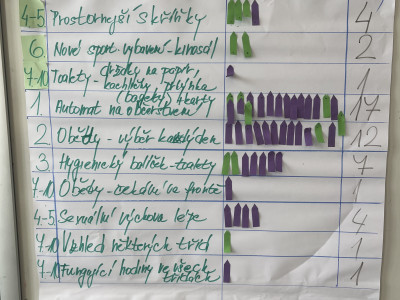 4-5 Prostornější skříňky 4
6 Nové sport. vybavení - kinball 2
7-10 Toalety - držáky na papír, 1
kachličky, prkýnka
(toalety) 4 karty
1. Automat na občerstvení 17
2 Obědy - výběr každý den 12
3. Hygienický balíček - toalety 7
7-10 Obědy - čekání ve frontě 1
4-5 Sexuální výchova lépe 4
7-10 Vzhled některých tříd 1
7-10 Fungující hodiny ve všech 1
třídách